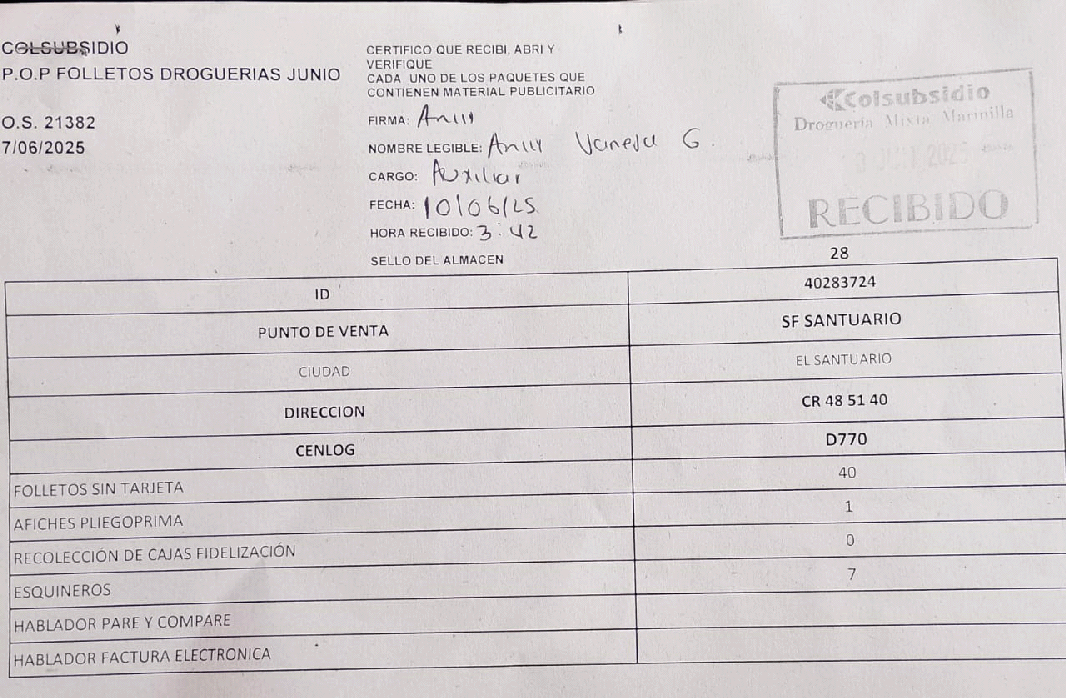 COLSUBSIDIO
P.O.P FOLLETOS DROGUERIAS JUNIO
O.S. 21382
7/06/2025
CERTIFICO QUE RECIBI, ABRI Y
VERIFIQUE
CADA UNO DE LOS PAQUETES QUE
CONTIENEN MATERIAL PUBLICITARIO
FIRMA:
NOMBRE LEGIBLE: Vanesa G.
CARGO: Auxiliar
FECHA: 10/06/25
HORA RECIBIDO: 3:42
SELLO DEL ALMACEN
Colsubsidio
Drogueria Mixta Marinilla
RECIBIDO
28
ID 40283724
PUNTO DE VENTA SF SANTUARIO
CIUDAD EL SANTUARIO
DIRECCION CR 48 51 40
CENLOG D770
FOLLETOS SIN TARJETA 40
AFICHES PLIEGOPRIMA 1
RECOLECCIÓN DE CAJAS FIDELIZACIÓN 0
ESQUINEROS 7
HABLADOR PARE Y COMPARE
HABLADOR FACTURA ELECTRONICA